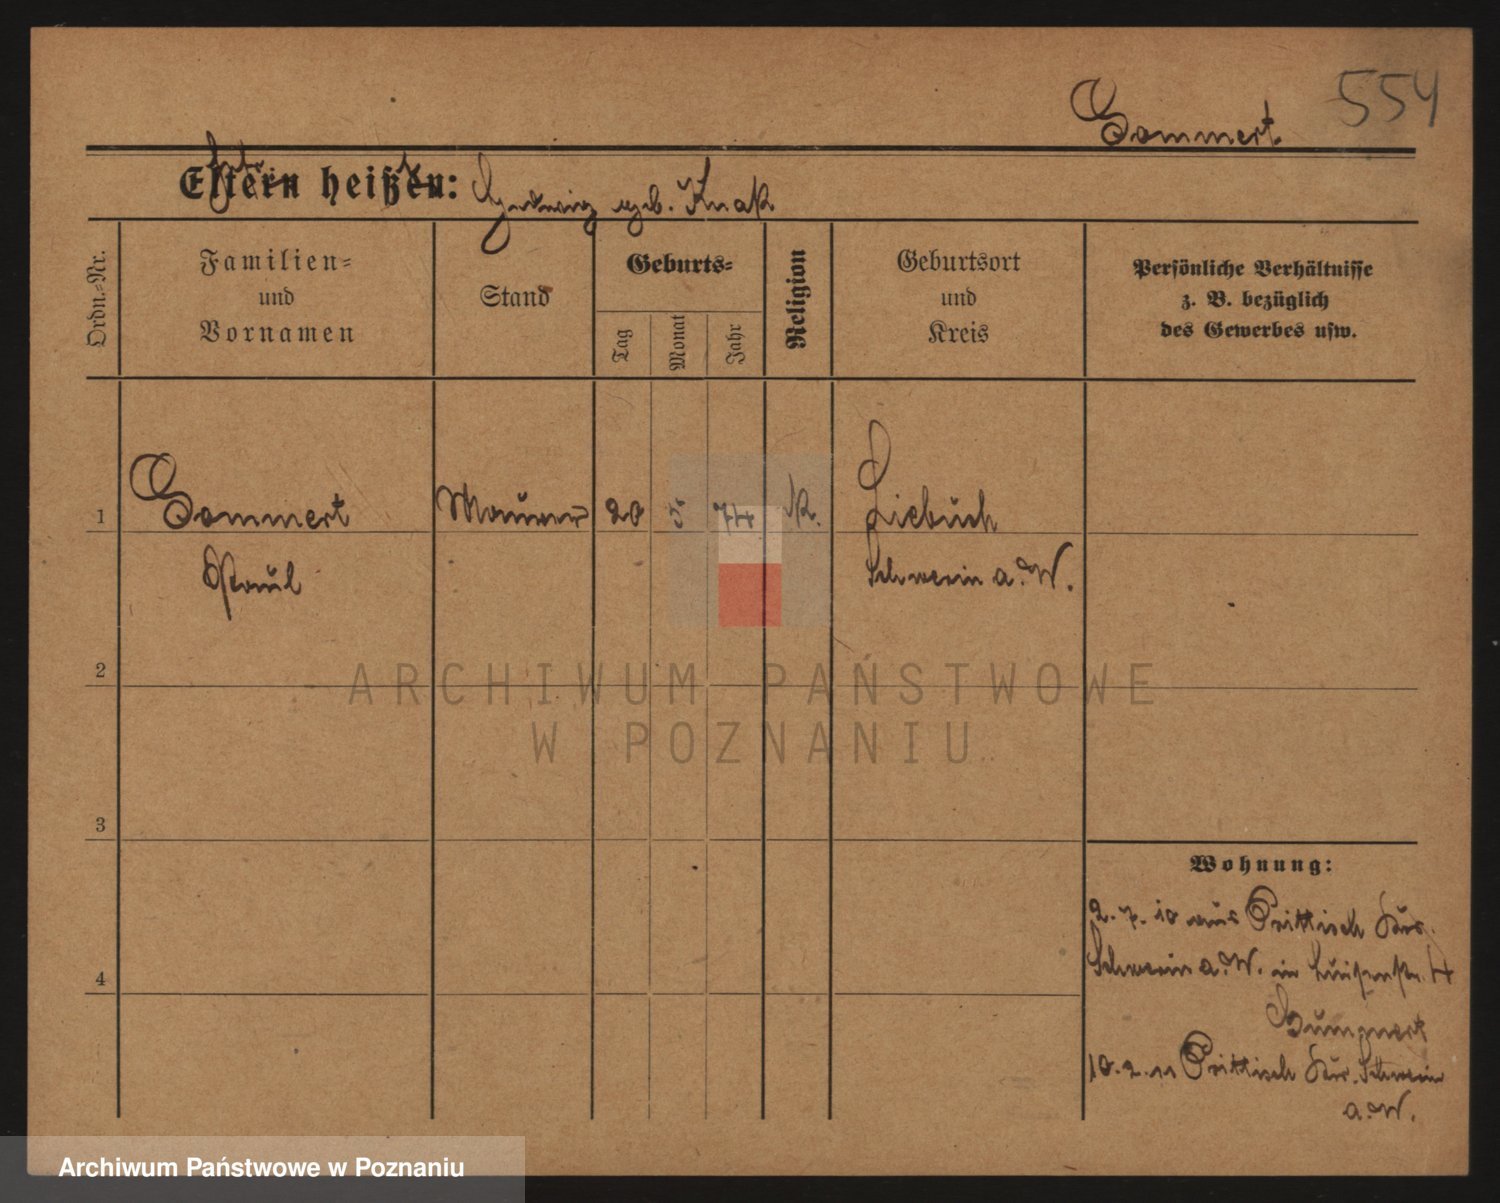 554
Sommert
Eltern heißen: Hedwig geb. Knak
Ordn.-Nr.
Familien-
und
Vornamen
Stand
Geburts-
Tag
Monat
Jahr
Religion
Geburtsort
und
Kreis
Persönliche Verhältnisse
z. B. bezüglich
des Gewerbes usw.
1
Sommert
Maurer
20
5
74
K.
Liebuch
Paul
Schwerin a. W.
2
ARCHIWUM PAŃSTWOWE
W POZNANIU
3
Wohnung:
2. 7. 10 aus Prittisch Krs.
Schwerin a. W. in Luisenstr. 4
4
10. 2. 11 Prittisch Krs. Schwerin
a. W.
Archiwum Państwowe w Poznaniu